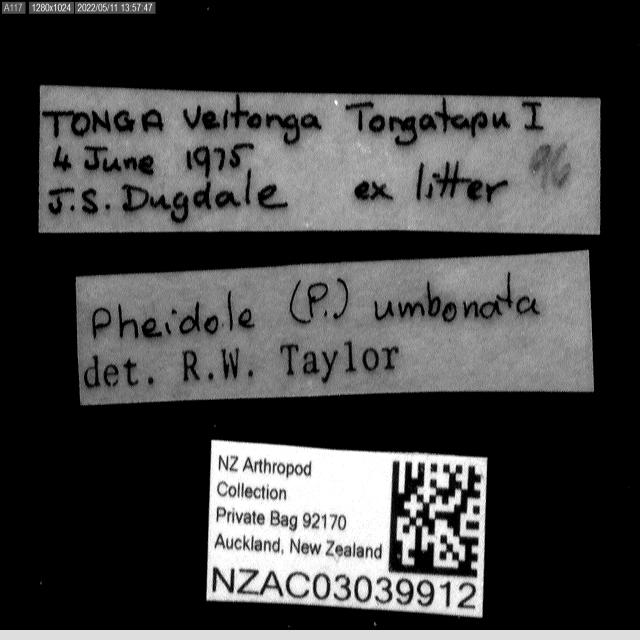 A117 1280x1024 2022/05/11 13:57:47
TONGA Veitonga Tongatapu I
4 June 1975 96
J.S. Dugdale ex litter
Pheidole (P.) umbonata
det. R.W. Taylor
NZ Arthropod
Collection
Private Bag 92170
Auckland, New Zealand
NZAC03039912